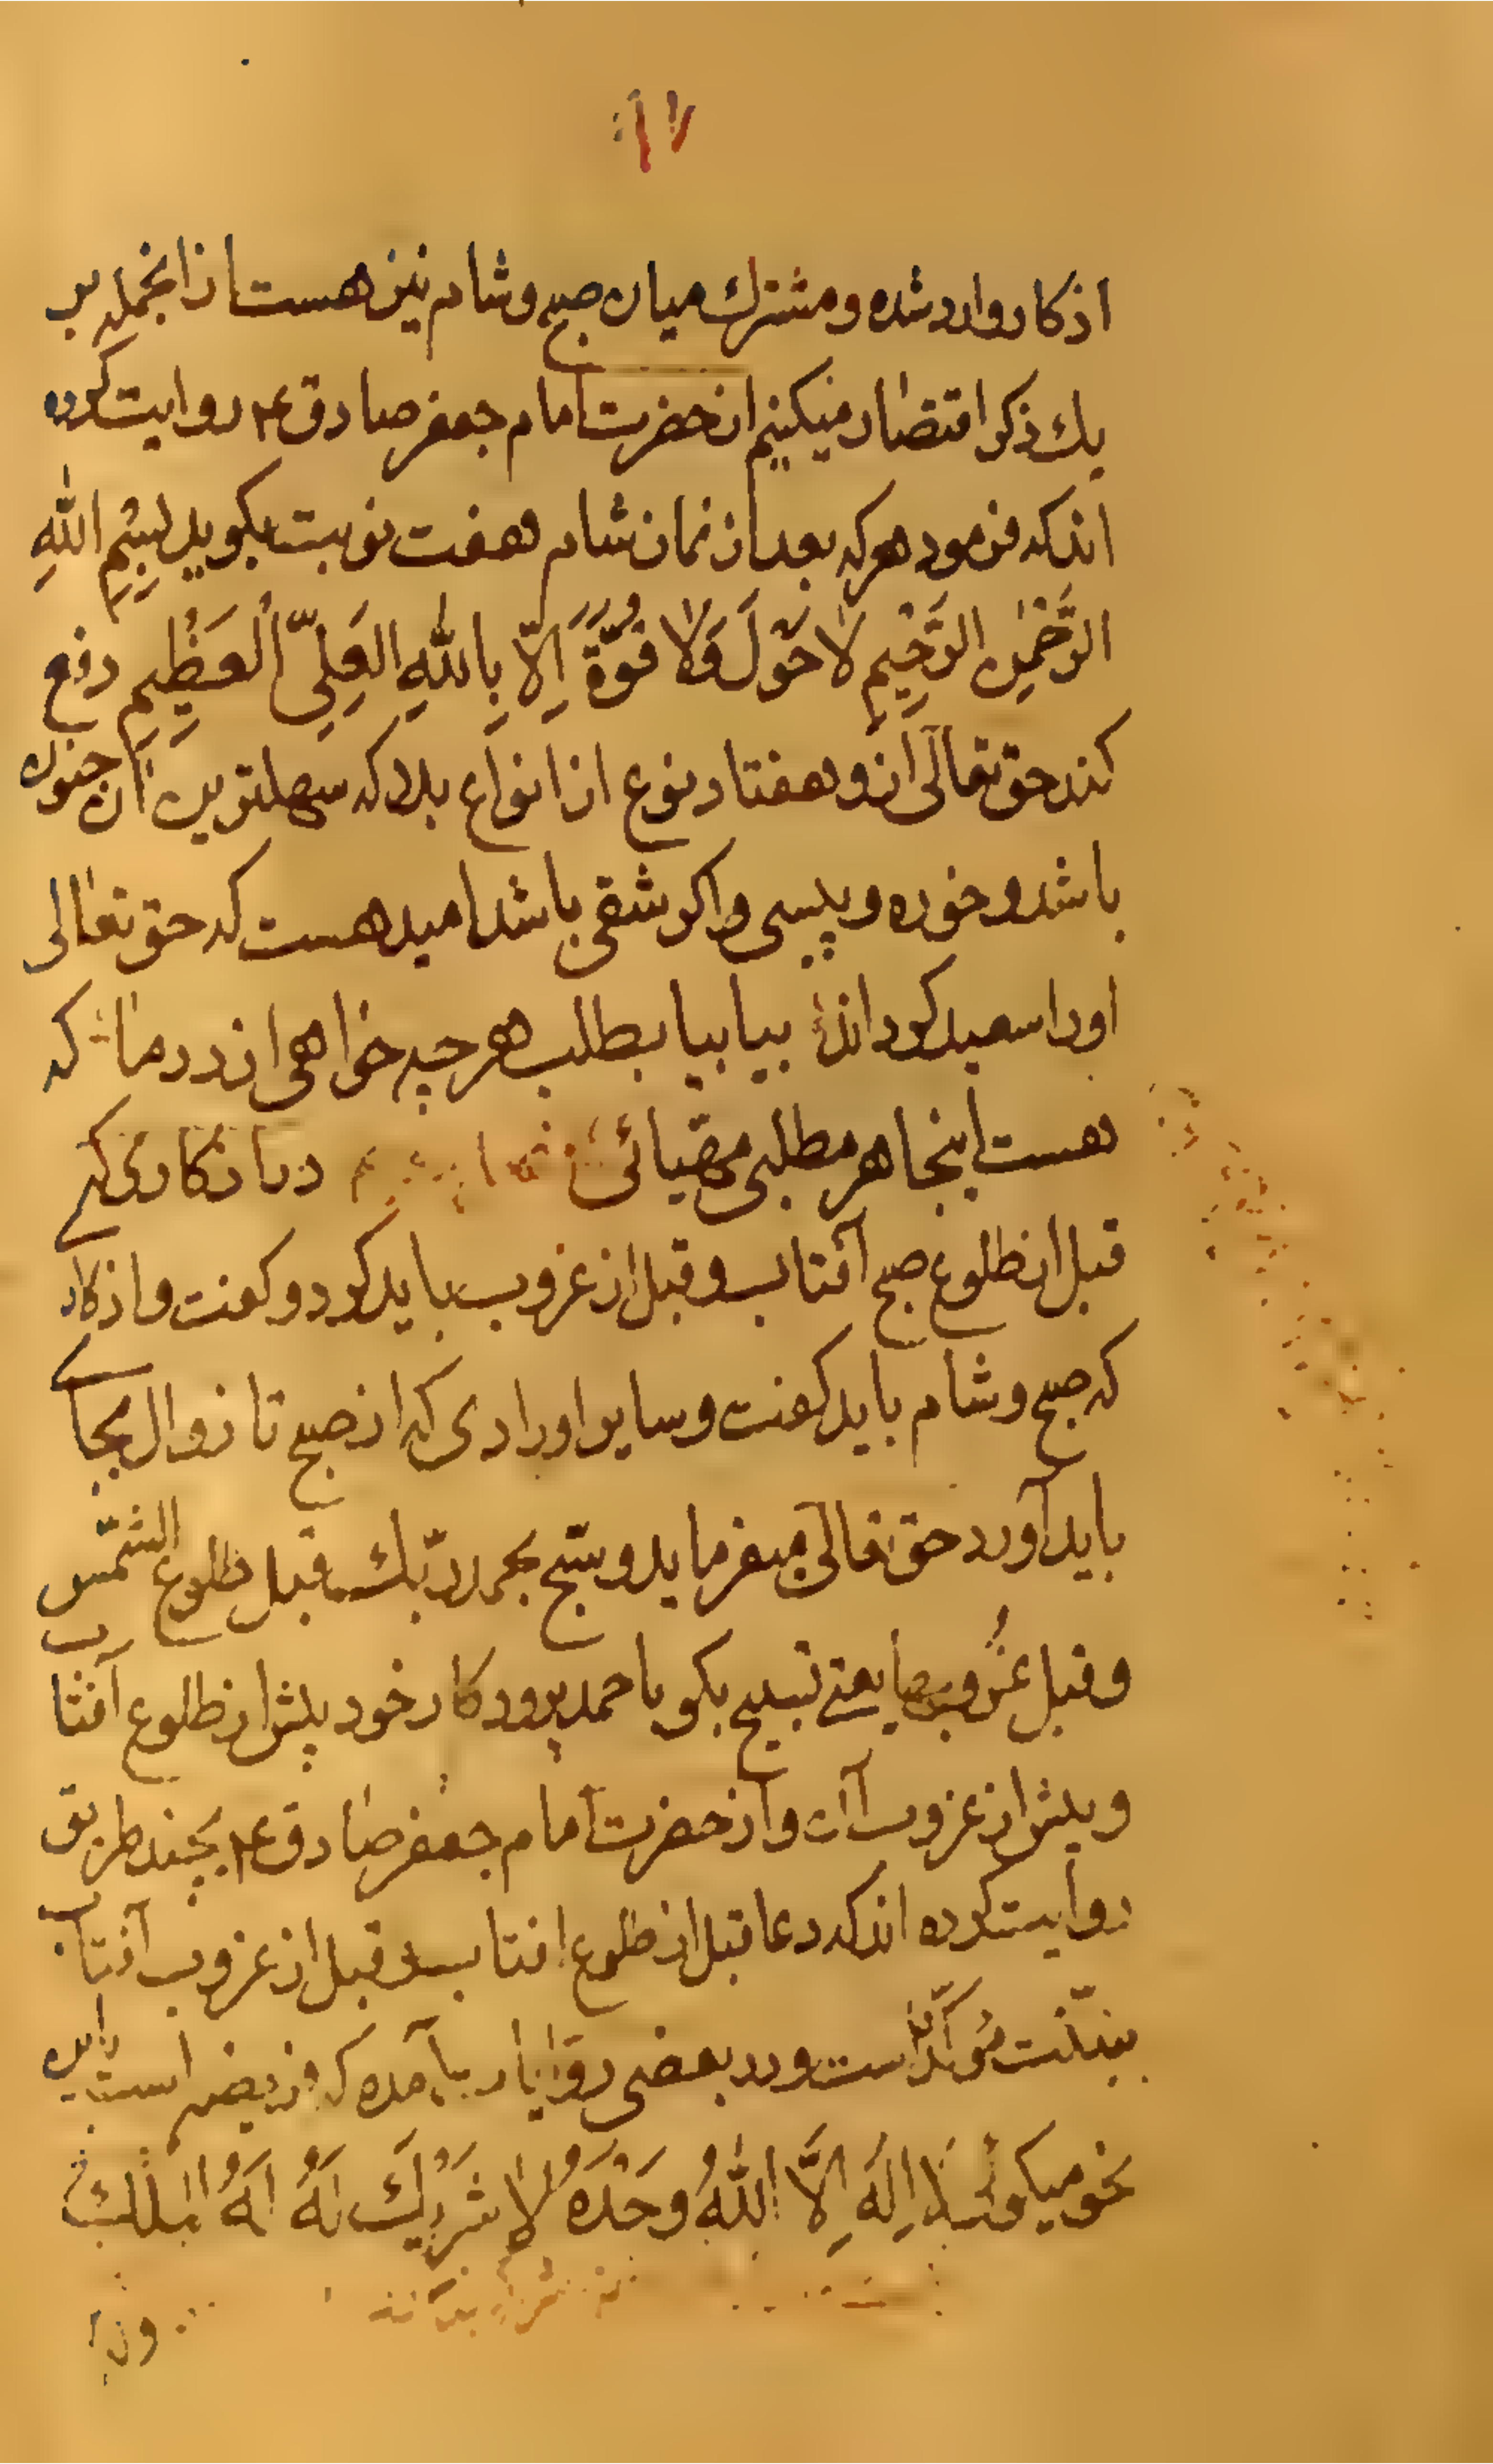 اذکار وارد شده و مشترك میان صبح و شام نیز هست از انجمله بر
یك ذکر اقتصار میکنیم از حضرت امام جعفر صادق ع روایت کرده
اند که فرمود هر که بعد از نماز شام هفت نوبت بکوید بِسْمِ اللّٰهِ
الرَّحْمٰنِ الرَّحِیْمِ لَا حَوْلَ وَلَا قُوَّةَ اِلَّا بِاللّٰهِ الْعَلِیِّ الْعَظِیْمِ دفع
کند حق تعالی ازو هفتاد نوع از انواع بلا که سهلترین آن جنون
باشد و خوره و پیسی و اکر شقی باشد امید هست که حق تعالی
اورا سعید کرداند بیا بیا بطلب هر چه خواهی از در ما که
هست اینجا هر مطلبی مهیائی در اذکاری که
قبل از طلوع صبح آفتاب و قبل از غروب باید کرد و کفت و اذکار
که صبح و شام باید کفت و سایر اورادی که از صبح تا زوال بجا
باید آورد حق تعالی میفرماید و سبّح بحمد ربّك قبل طلوع الشّمس
و قبل غُروبها یعنی تسبیح بکو با حمد پرودکار خود پیش از طلوع آفتاب
و پیش از غروب آن و از حضرت امام جعفر صادق ع بچند طریق
روایت کرده اند که دعا قبل از طلوع افتاب و قبل از غروب آفتاب
سنّت مؤکّد است و در بعضی آمده که فریضه است باین
نحو میکوئید لَا اِلٰهَ اِلَّا اللّٰهُ وَحْدَهُ لَا شَرِیْكَ لَهُ لَهُ الْمُلْكُ